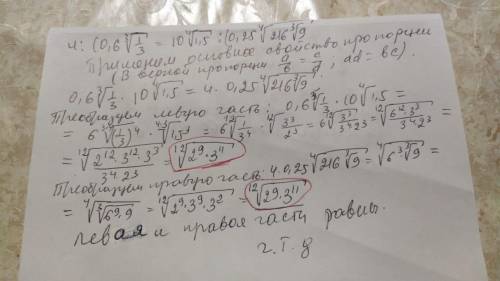 4 : (0,6 ∛(1/3) = 10 ∜1,5 : (0,25 ∜(216 ∛9)
Применим основное свойство пропорции
(В верной пропорции a/b = c/d, ad = bc).
0,6 ∛(1/3) · 10 ∜1,5 = 4 · 0,25 ∜(216 ∛9)
Преобразуем левую часть: 0,6 ∛(1/3) · 10 ∜1,5 =
= 6 ¹²√((1/3)⁴) · ⁴·³√(1,5³) = 6 ¹²√(1/3⁴) · ¹²√(3³/2³) = 6 ¹²√(3³/(3⁴·2³)) = ¹²√(6¹²·3³/(3⁴·2³)) =
= ¹²√(2¹²·3¹²·3³/(3⁴·2³)) = ¹²√(2⁹·3¹¹)
Преобразуем правую часть: 4·0,25 ∜(216 ∛9) = ∜(6³ ∛9) =
= ∜(∛(6⁹·9)) = ¹²√(2⁹·3⁹·3²) = ¹²√(2⁹·3¹¹)
левая и правая части равны.
ч.т.д